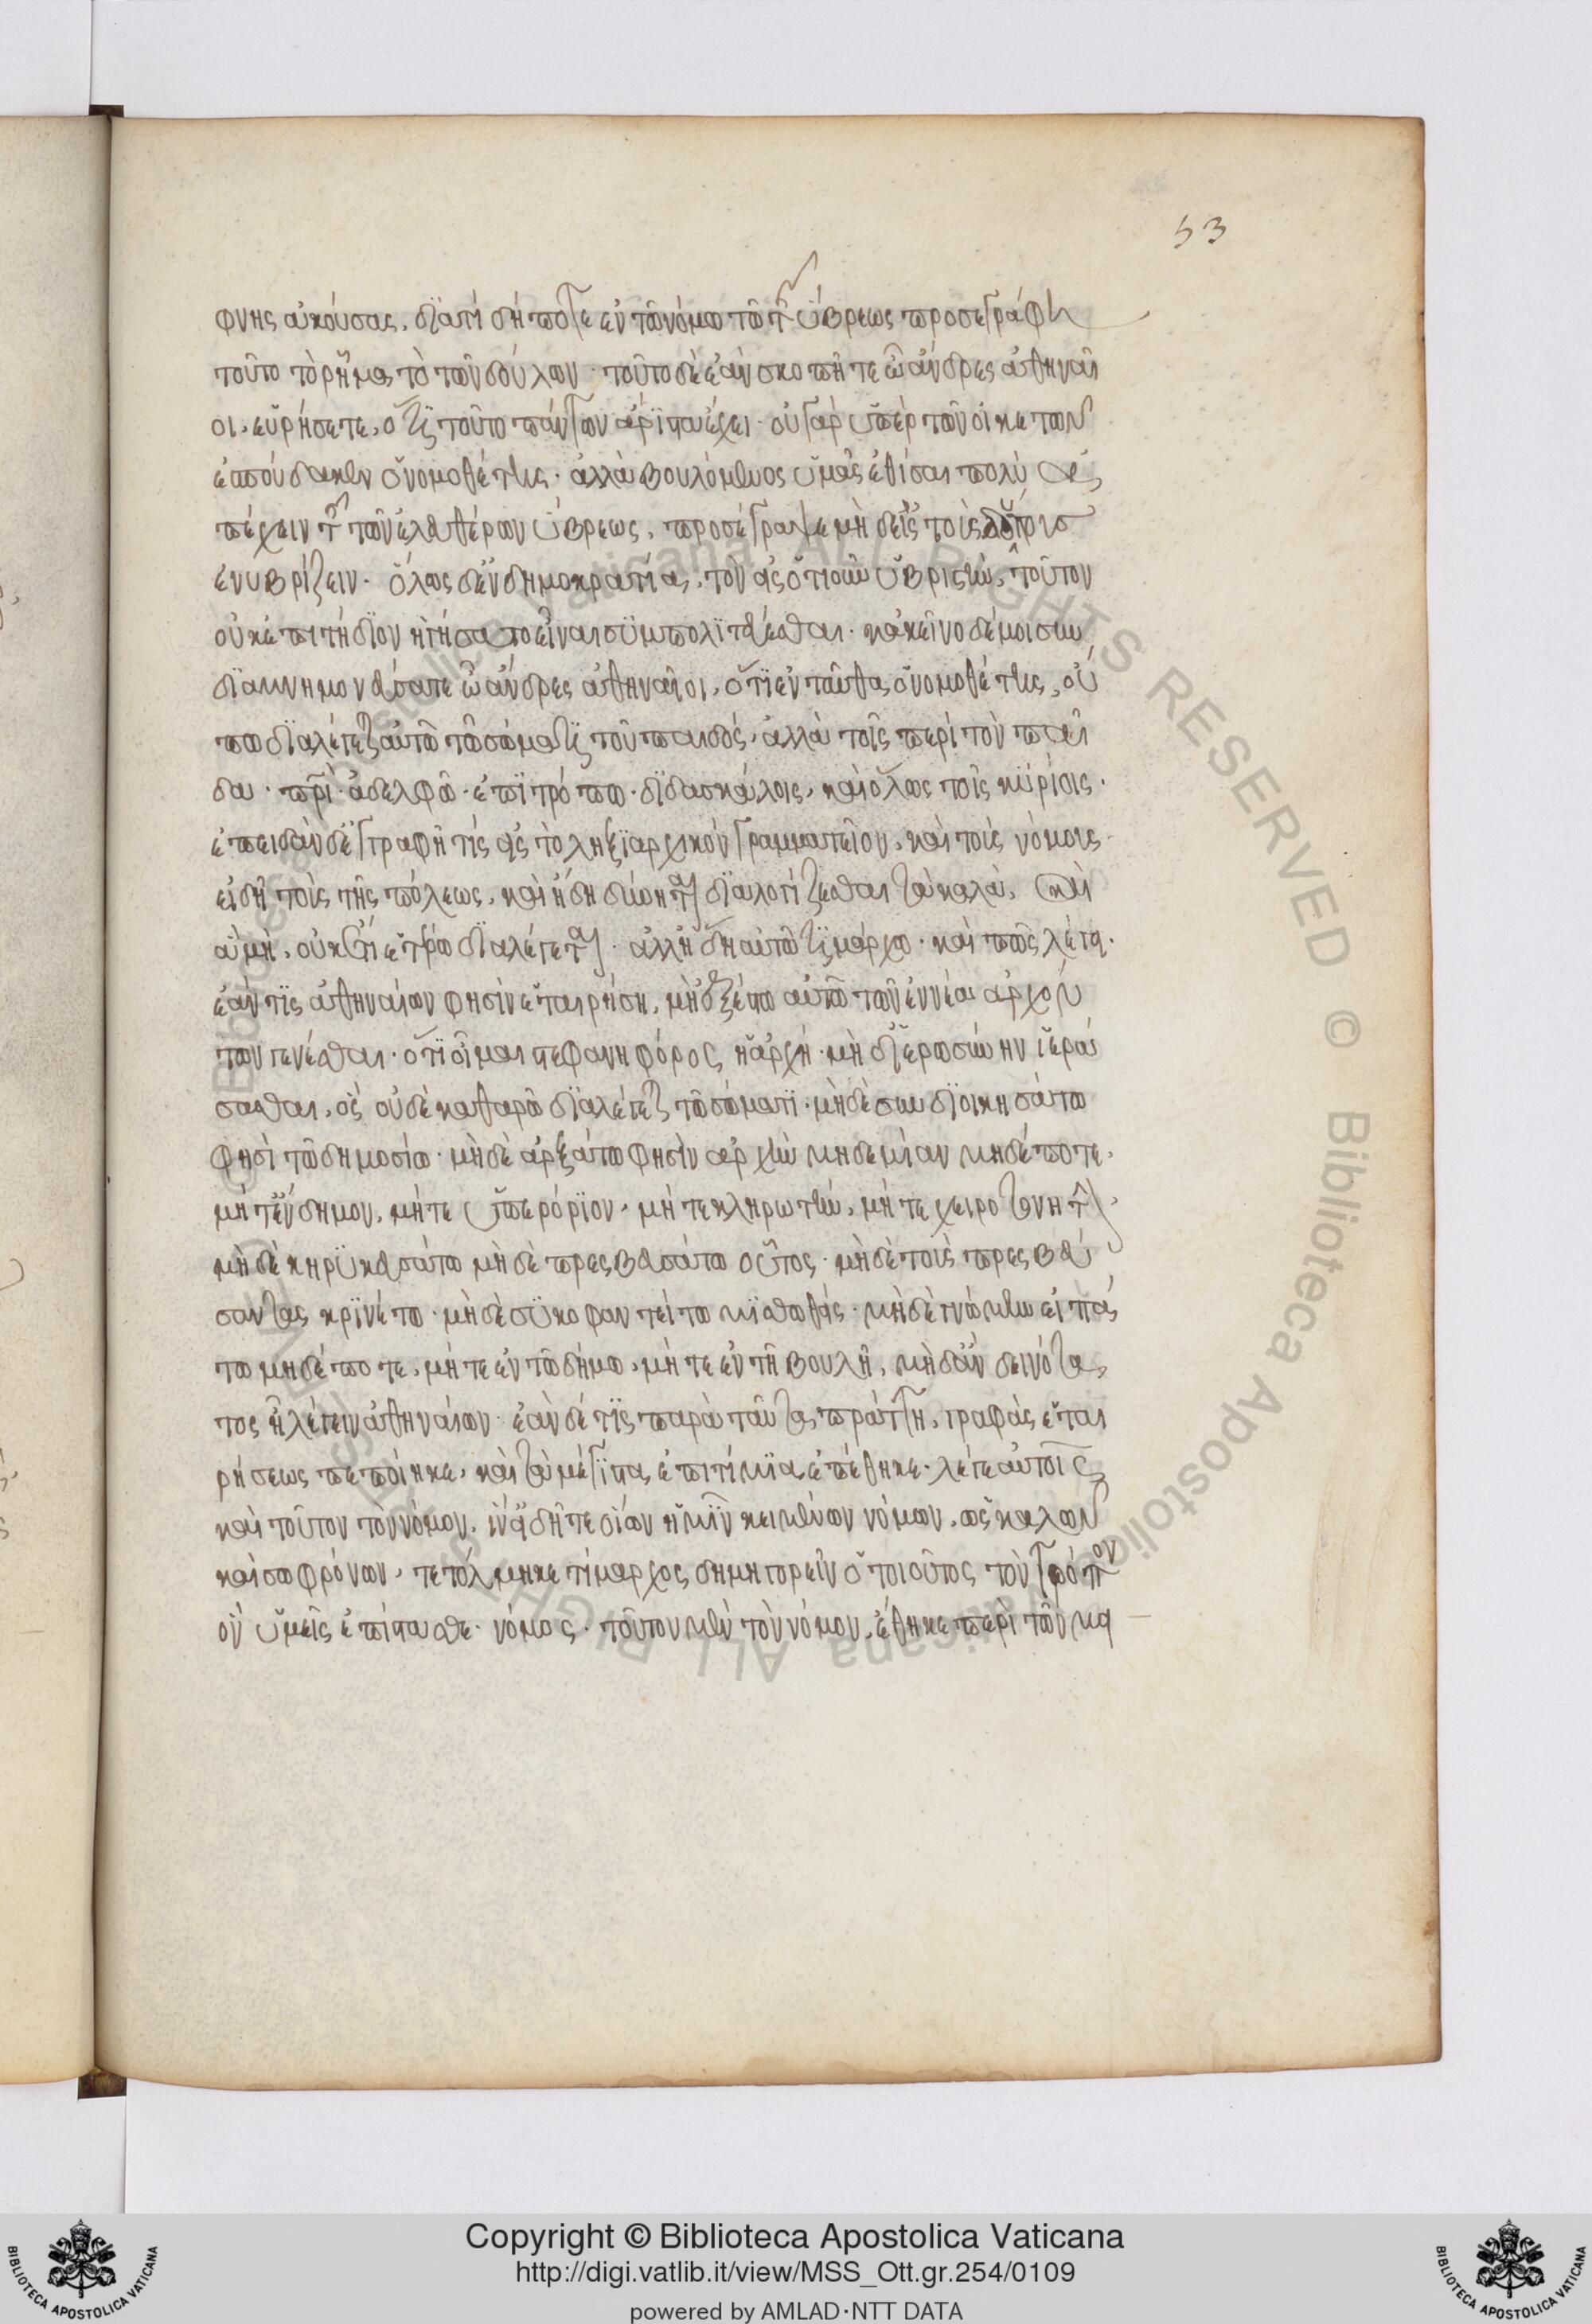 53
φνης ἀκούσας, διατί δή ποτε ἐν τῶ νόμω τῶ τῆς ὕβρεως προσεγράφη
τοῦτο τὸ ῥῆμα τὸ τῶν δούλων· τοῦτο δὲ ἐὰν σκοπῆτε ὦ ἄνδρες ἀθηναῖ
οι, εὑρήσετε, ὅτι τοῦτο πάντων ἄριστα ἔχει· οὐ γὰρ ὑπὲρ τῶν οἰκετῶν
ἐσπούδακεν ὁ νομοθέτης· ἀλλὰ βουλόμενος ὑμᾶς ἐθίσαι πολὺ ἀ
πέχειν τῆς τῶν ἐλευθέρων ὕβρεως, προσέγραψε μὴ δεῖν τοὺς
ἐνυβρίζειν· ὅλως δ' ἐν δημοκρατία, τὸν εἰς ὁτιοῦν ὑβριστὴν, τοῦτον
οὐκ ἐπιτήδιον ἡγήσατο εἶναι συμπολιτεύεσθαι· κἀκεῖνο δέ μοι συν
διαμνημονεύσατε ὦ ἄνδρες ἀθηναῖοι, ὅτι ἐνταῦθα ὁ νομοθέτης, οὔ
πω διαλέγεται αὐτῶ τῶ σώματι τοῦ παιδός, ἀλλὰ τοῖς περὶ τὸν παῖ
δα· πατρὶ· ἀδελφῶ· ἐπιτρόπω· διδασκάλοις, καὶ ὅλως τοῖς κυρίοις·
ἐπειδὰν δ' ἐγγραφῆ τίς εἰς τὸ ληξιαρχικὸν γραμματεῖον, καὶ τοὺς νόμους
εἰδῆ τοὺς τῆς πόλεως, καὶ ἤδη δύνηται διαλογίζεσθαι τὰ καλὰ, καὶ
ἃ μὴ, οὐκ ἔτι ἑτέρω διαλέγεται· ἀλλ' ἤδη αὐτῶ τιμάρχω· καὶ πῶς λέγει·
ἐάν τις ἀθηναίων φησὶν ἑταιρήση, μὴ ἐξέστω αὐτῶ τῶν ἐννέα ἀρχόν
των γενέσθαι· ὅτι οἶμαι στεφανηφόρος ἡ ἀρχή· μὴ δ' ἱερωσύνην ἱερά
σασθαι, ὡς οὐδὲ καθαρῶ διαλέγεται τῶ σώματι· μὴδὲ συνδιοικησάτω
φησὶ τῶ δημοσίω· μὴδὲ ἀρξάτω φησὶν ἀρχὴν μηδεμίαν μηδέποτε,
μήτ' ἔνδημον, μήτε ὑπερόριον, μήτε κληρωτὴν, μήτε χειροτονητὴν,
μὴδὲ κηρυκευσάτω μὴδὲ πρεσβευσάτω οὗτος· μὴδὲ τοὺς πρεσβεύ
σαντας κρινέτω· μὴδὲ συκοφαντείτω μισθωθείς· μὴδὲ γνώμην εἰπά
τω μηδέποτε, μήτε ἐν τῶ δήμω, μήτε ἐν τῆ βουλῆ, μὴδ' ἂν δεινότα
τος ἦ λέγειν ἀθηναίων· ἐὰν δέ τις παρὰ ταῦτα πράττη, γραφὰς ἑται
ρήσεως πεποίηκε, καὶ τὰ μέγιστα ἐπιτίμια ἐπέθηκε· λέγε αὐτοῖς
καὶ τοῦτον τὸν νόμον, ἵν' εἰδῆτε οἵων ἡμῖν κειμένων νόμων, ὡς καλῶν
καὶ σωφρόνων, τετόλμηκε τίμαρχος δημηγορεῖν ὁ τοιοῦτος τὸν τρόπον
ὃν ὑμεῖς ἐπίστασθε· νόμος· τοῦτον μὲν τὸν νόμον, ἔθηκε περὶ τῶν μει
Copyright © Biblioteca Apostolica Vaticana
http://digi.vatlib.it/view/MSS_Ott.gr.254/0109
powered by AMLAD·NTT DATA